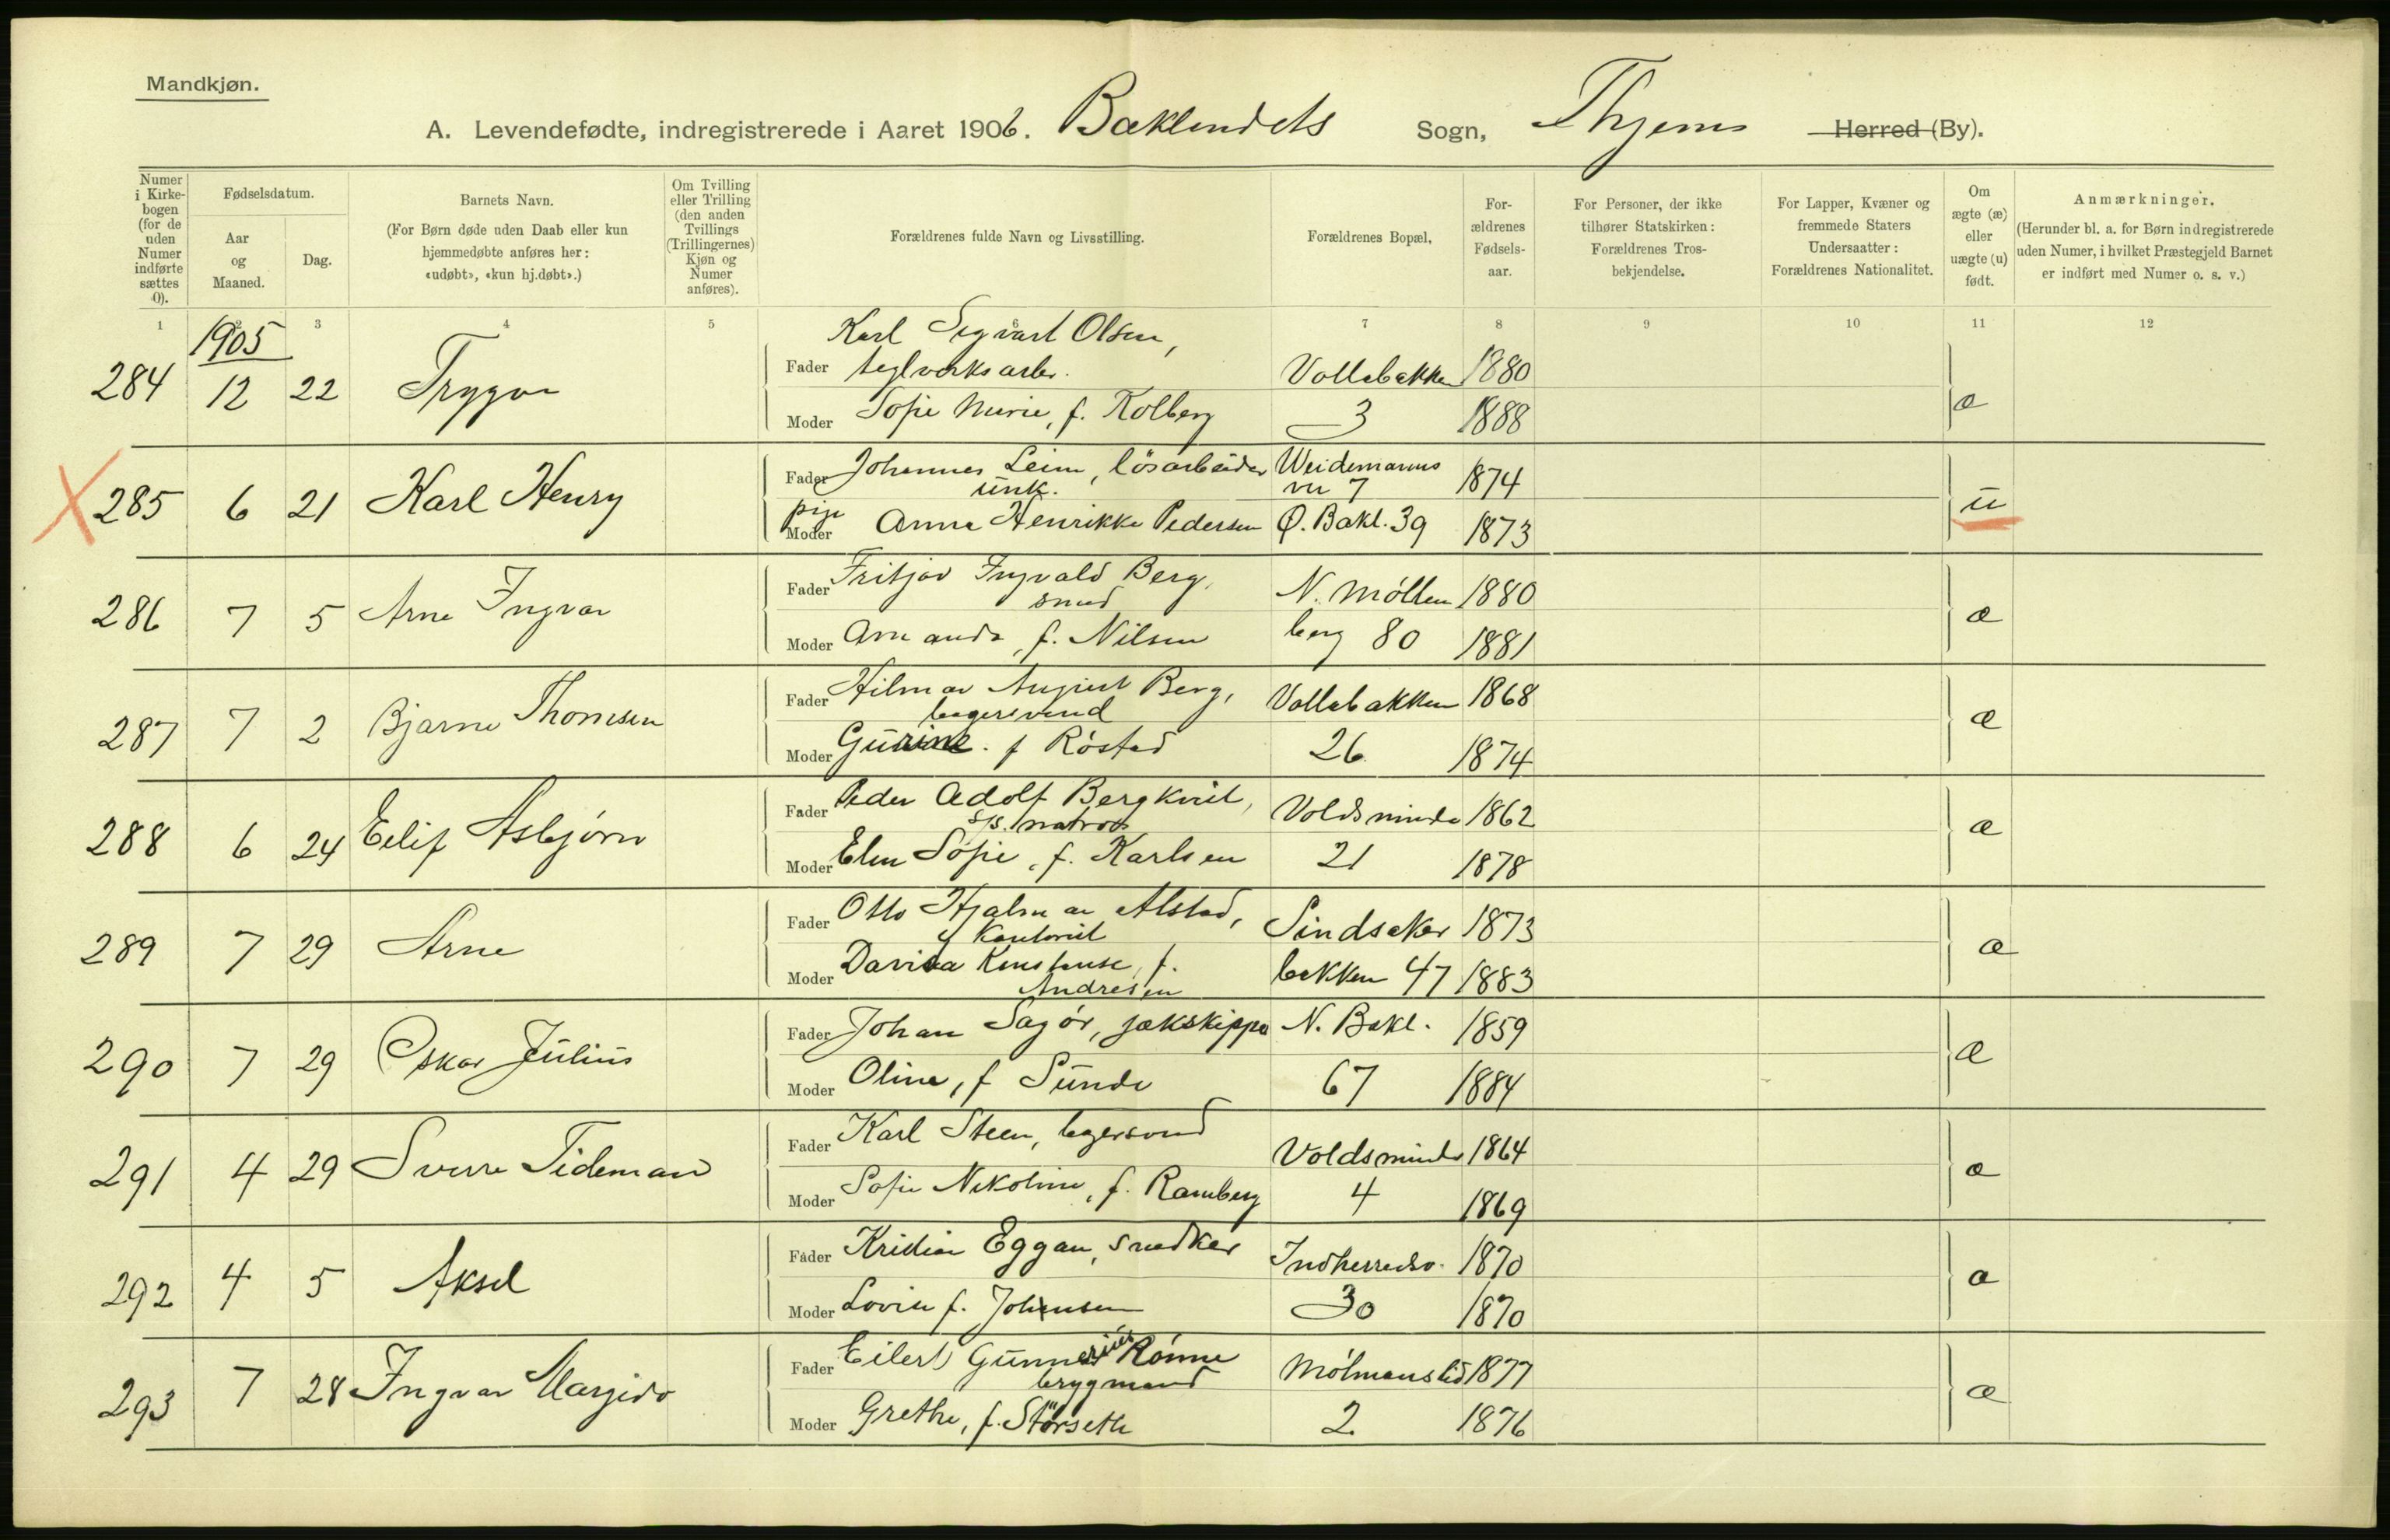 Mandkjøn.
A. Levendefødte, indregistrerede i Aaret 1906. Baklandets Sogn, Thjems Herred (By).
Numer i Kirke-bogen (for de uden Numer indførte sættes 0).
Fødselsdatum.
Aar og Maaned.
Dag.
Barnets Navn.
(For Børn døde uden Daab eller kun hjemmedøbte anføres her: «udøbt», «kun hj.døbt».)
Om Tvilling eller Trilling (den anden Tvillings (Trillingernes) Kjøn og Numer anføres).
Forældrenes fulde Navn og Livsstilling.
Forældrenes Bopæl.
For-ældrenes Fødsels-aar.
For Personer, der ikke tilhører Statskirken: Forældrenes Tros-bekjendelse.
For Lapper, Kvæner og fremmede Staters Undersaatter: Forældrenes Nationalitet.
Om ægte (æ) eller uægte (u) født.
Anmærkninger.
(Herunder bl. a. for Børn indregistrerede uden Numer, i hvilket Præstegjeld Barnet er indført med Numer o. s. v.)
1 2 3 4 5 6 7 8 9 10 11 12
1905
284 12 22 Trygve
Karl Sigvart Olsen,
Fader teglverksarb. Vollabakken 1880
Moder Sofie Marie, f. Kolberg 3 1888
æ
285 6 21 Karl Henry
Fader Johannes Leim, løsarbeider Weidemanns 1874
unk. vei 7
pige
Moder Anna Henrikke Pedersen Ø. Bakl. 39 1873
ü
286 7 5 Arne Ingvar
Fader Fritjov Ingvald Berg, N. Møllen 1880
smed
Moder Amanda, f. Nilsen berg 80 1881
æ
287 7 2 Bjarne Thomsen
Fader Hilmar August Berg, Vollabakken 1868
bagersvend
Moder Gurine. f Røstad 26 1874
æ
288 6 24 Eilif Asbjørn
Fader Peder Adolf Bergkvist, Voldsminde 1862
s/s. matros
Moder Elen Sofie, f. Karlsen 21 1878
æ
289 7 29 Arne
Fader Otto Hjalmar Alstad, Sindsaker 1873
Kontorist
Moder Davida Konstanse, f. bakken 47 1883
Andresen
æ
290 7 29 Oskar Julius
Fader Johan Sagør, jækskipper N. Bakl. 1859
Moder Oline, f Sunde 67 1884
æ
291 4 29 Sverre Tideman
Fader Karl Steen, bagersvend Voldsminde 1864
Moder Sofie Nikoline, f. Ramberg 4 1869
æ
292 4 5 Aksel
Fader Kristian Eggan, snedker Indherredsv. 1870
Moder Lovise f. Johansen 30 1870
æ
293 7 28 Ingvar Margido
Fader Eilert Gunnerius Rønne Mølmanslid 1877
brygmand
Moder Grethe, f. Størseth 2 1876
æ